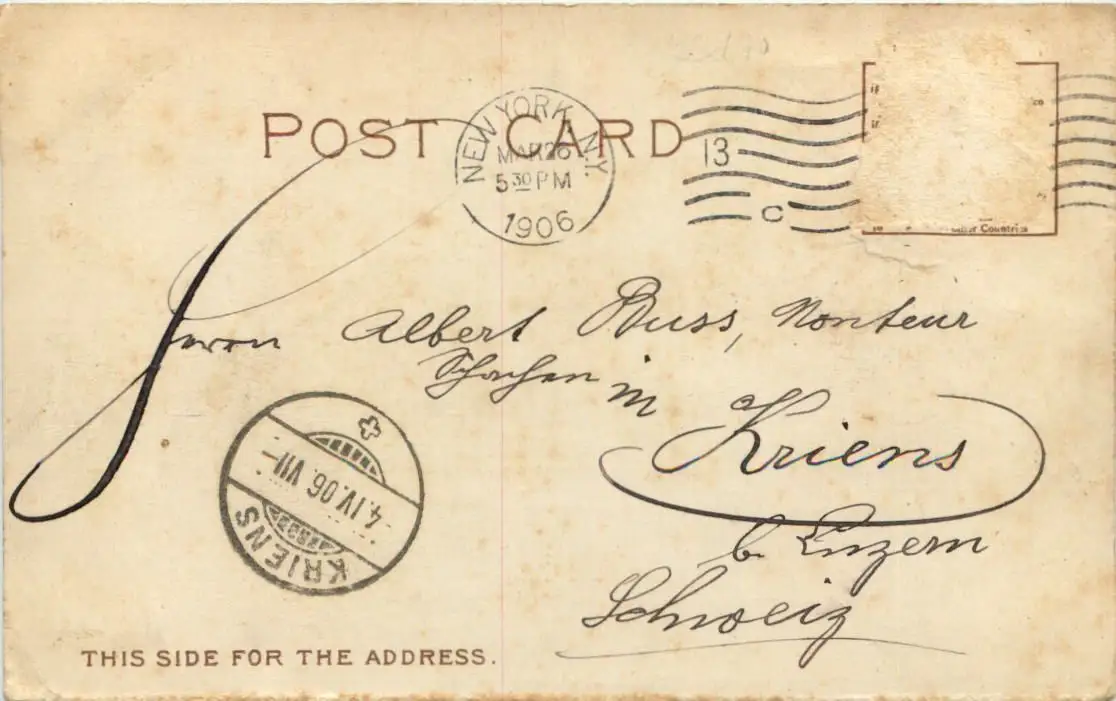 POST CARD
NEW YORK, N.Y.
MAR 26
5 30 PM
1906
13
C
Other Countries
Herrn Albert Buss, Monteur
Schachen in
Kriens
b. Luzern
Schweiz
4.IV.06 VII-
KRIENS
THIS SIDE FOR THE ADDRESS.